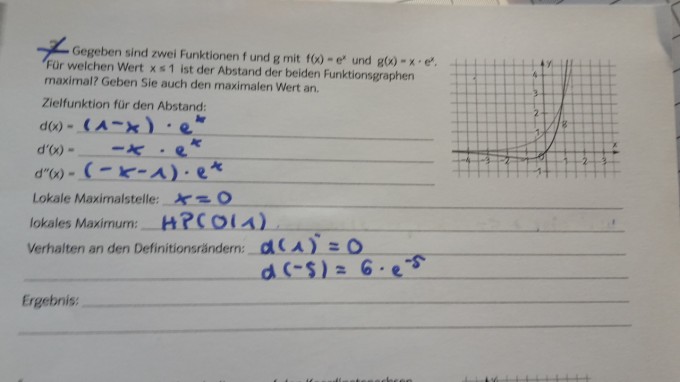 Gegeben sind zwei Funktionen f und g mit f(x) = eˣ und g(x) = x · eˣ.
Für welchen Wert x ≤ 1 ist der Abstand der beiden Funktionsgraphen
maximal? Geben Sie auch den maximalen Wert an.
Zielfunktion für den Abstand:
d(x) = (1-x) · eˣ
d'(x) = -x · eˣ
d''(x) = (-x-1) · eˣ
Lokale Maximalstelle: x=0
lokales Maximum: HP(0|1)
Verhalten an den Definitionsrändern: d(1) = 0
d(-5) = 6 · e⁻⁵
Ergebnis:
y
4
3
2
1
-4 -3 -2 0 1 2 3 x
-1
g